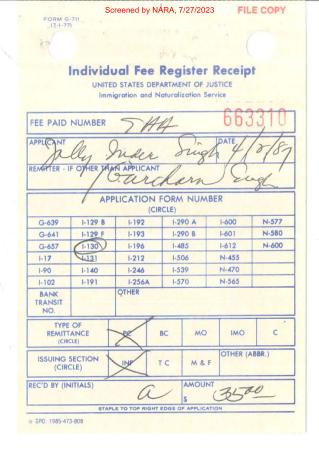 Screened by NARA, 7/27/2023
FILE COPY
FORM G-711
(7-1-77)
Individual Fee Register Receipt
UNITED STATES DEPARTMENT OF JUSTICE
Immigration and Naturalization Service
663310
FEE PAID NUMBER SHA
APPLICANT DATE
Jolly Inder Singh 4/2/87
REMITTER - IF OTHER THAN APPLICANT
Gurcharn Singh
APPLICATION FORM NUMBER
(CIRCLE)
G-639 I-129 B I-192 I-290 A I-600 N-577
G-641 I-129 F I-193 I-290 B I-601 N-580
G-657 I-130 I-196 I-485 I-612 N-600
I-17 I-131 I-212 I-506 N-455
I-90 I-140 I-246 I-539 N-470
I-102 I-191 I-256A I-570 N-565
BANK TRANSIT NO. OTHER
TYPE OF REMITTANCE (CIRCLE) PC BC MO IMO C
ISSUING SECTION (CIRCLE) INF T C M & F OTHER (ABBR.)
REC'D BY (INITIALS) a AMOUNT $ 35.00
STAPLE TO TOP RIGHT EDGE OF APPLICATION
GPO: 1985-473-808